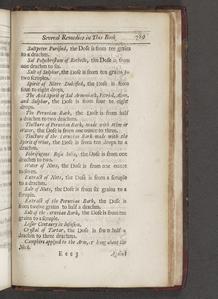 Several Remedies in This Book. 789
Saltpeter Purified, the Dose is from ten grains
to a drachm.
Sal Polychrestum of Rochelle, the Dose is from
one drachm to six.
Salt of Sulphur, the Dose is from ten grains to
two scruples.
Spirit of Nitre Dulcified, the Dose is from
four to eight drops.
The Acid Spirit of Sal Armoniack, Nitre, Allom,
and Sulphur, the Dose is from four to eight
drops.
The Peruvian Bark, the Dose is from half a
drachm to two drachms.
Tincture of Peruvian Bark, made with
Water, the Dose is from one ounce to three.
The Tincture of the Peruvian Bark made with the
Spirit of wine, the Dose is from ten drops to a
drachm.
Febrifugous the Dose is from one
drachm to two.
Water of Nuts, the Dose is from one ounce
to seven.
Extract of Nuts, the Dose is from a scruple
to a drachm.
Salt of Nuts, the Dose is from six grains to a
scruple.
Extract of the Peruvian Bark, the Dose is
from twelve grains to half a drachm.
Salt of the Peruvian Bark, the Dose is from ten
grains to a scruple.
Lesser Centaury in Infusion.
Crystal of Tartar, the Dose is from half a
drachm to three drachms.
Camphire applyed to the Arm, or hung about the
Neck.
E e e 3